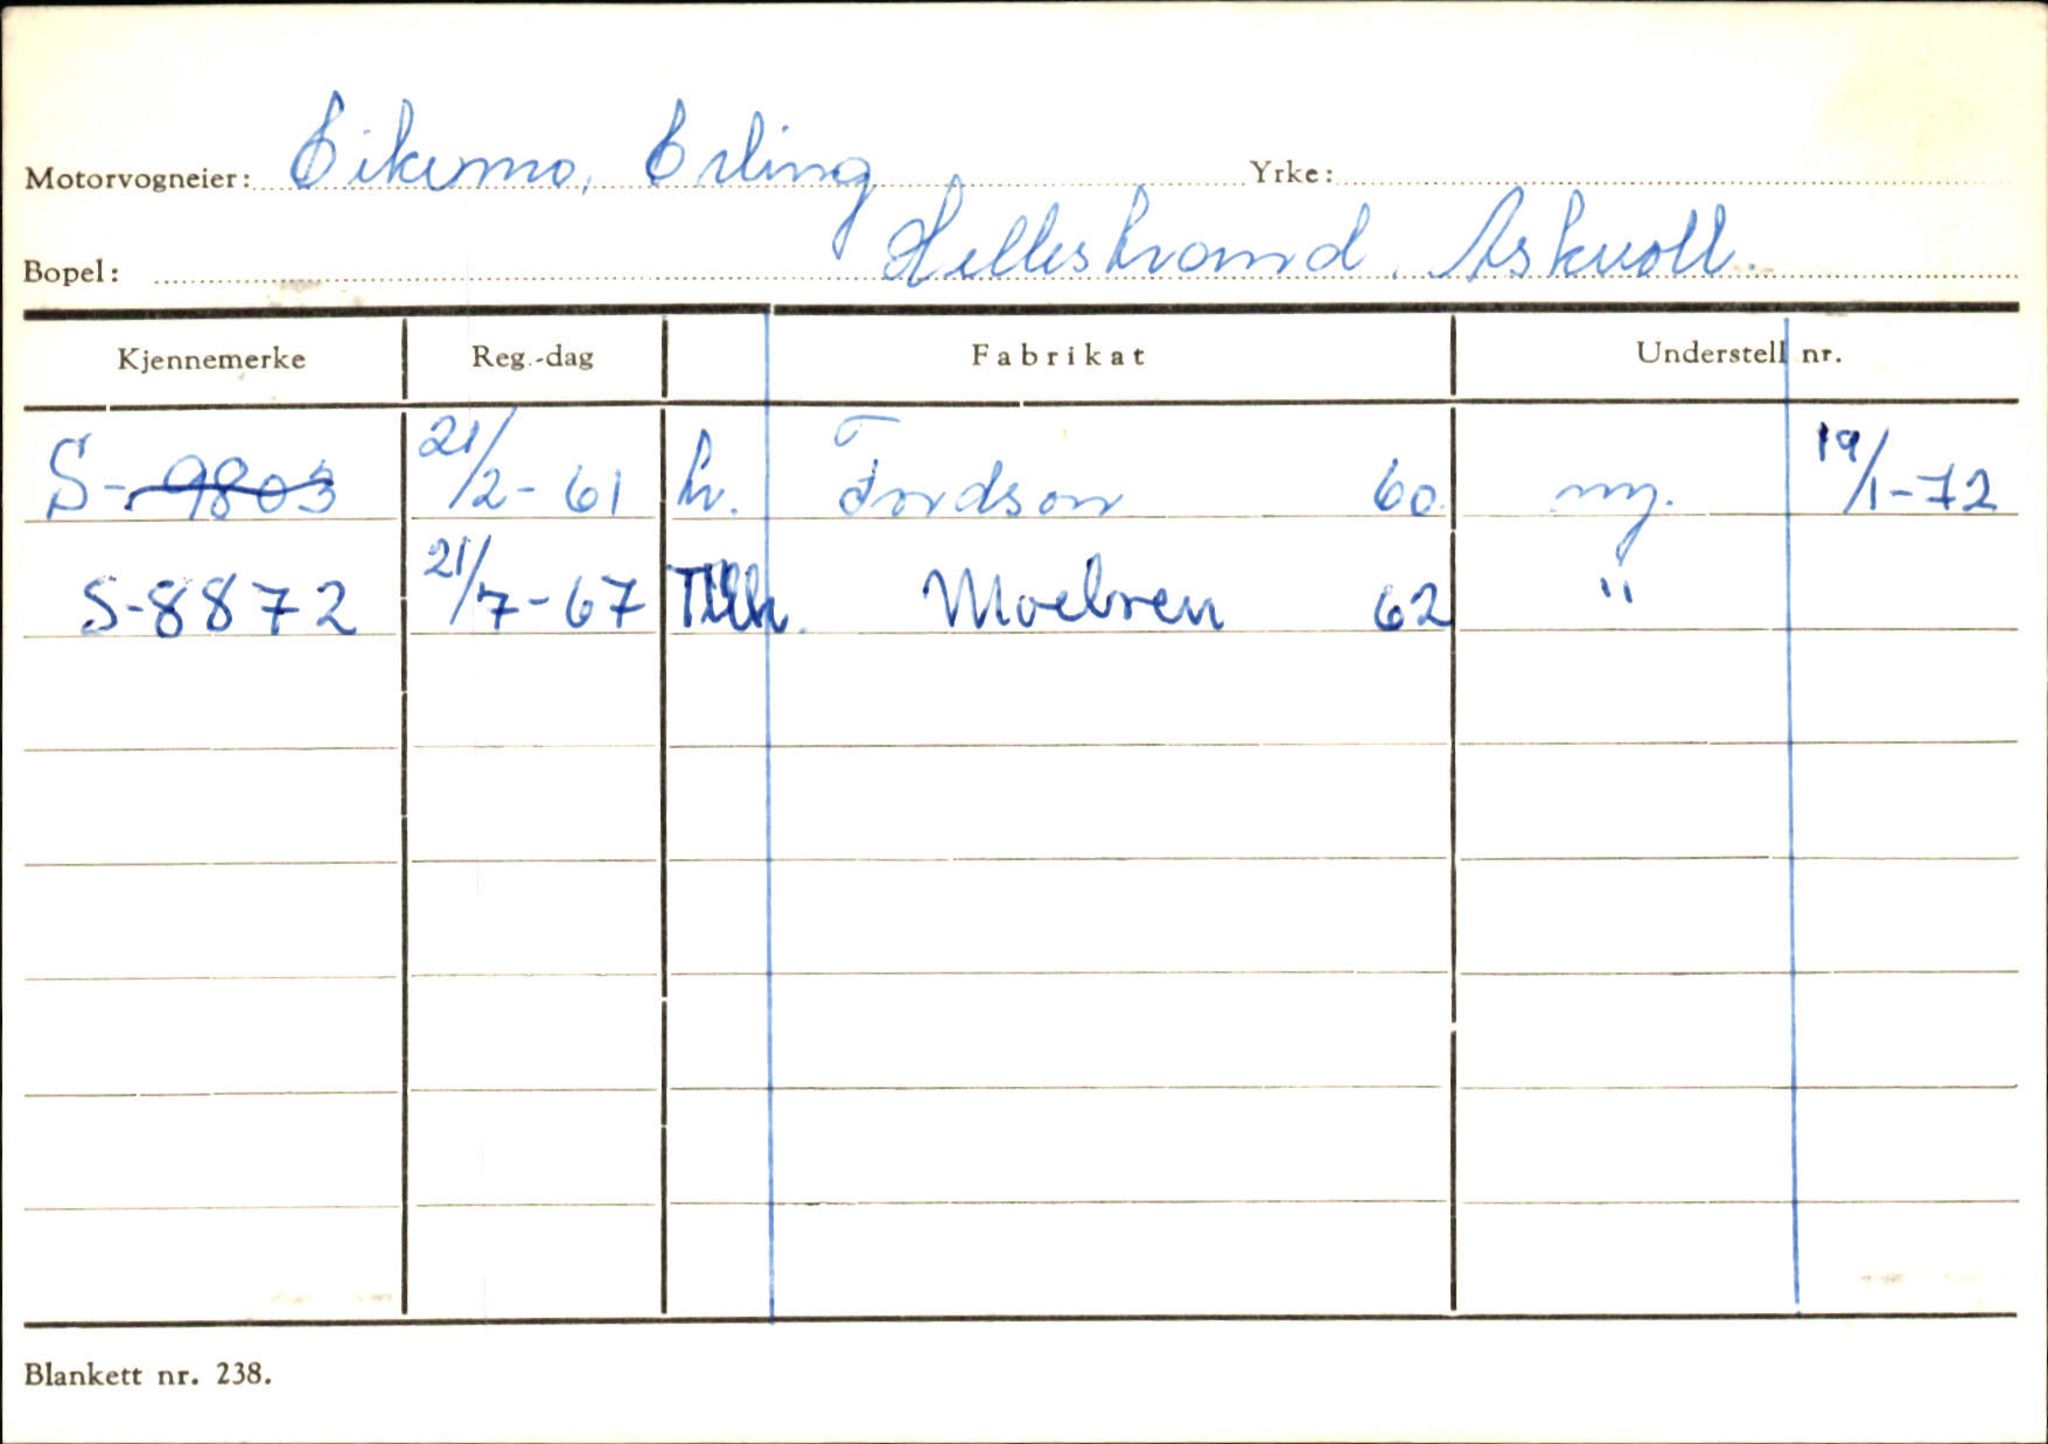 Motorvogneier: Eikemo, Erling Yrke:
Bopel: Hellestrand, Askvoll.
Kjennemerke Reg.-dag Fabrikat Understell nr.
S-9803 21/2-61 tr. Fordson 60 ny. 19/1-72
S-8872 21/7-67 Tilh. Moelven 62 "
Blankett nr. 238.